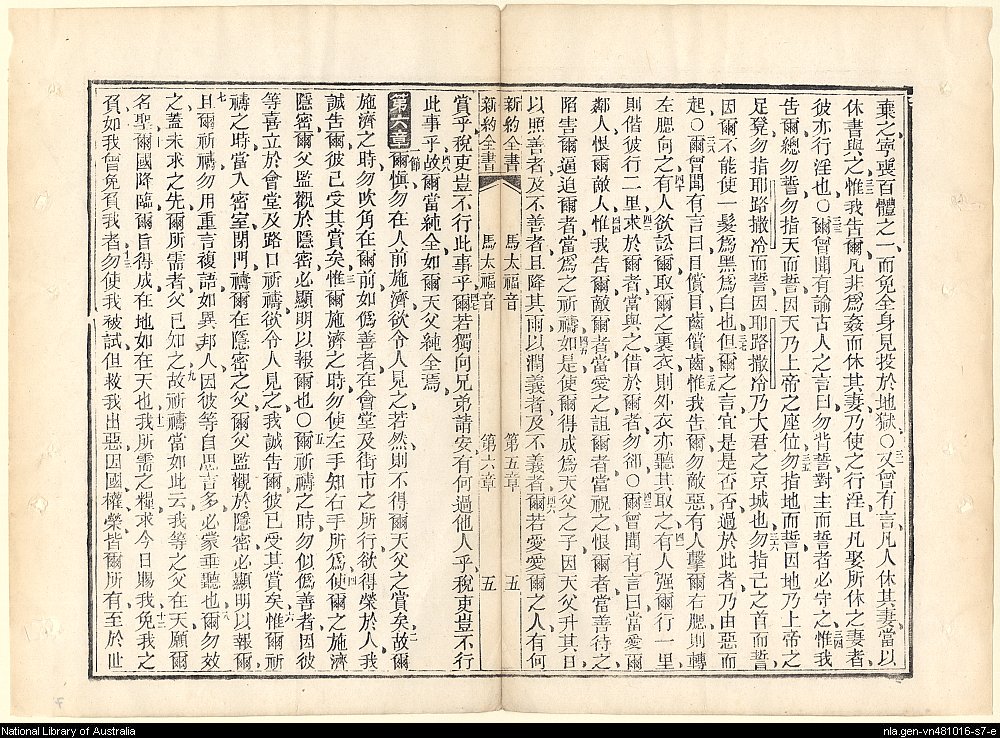 棄之寧喪百體之一而免全身見投於地獄○三一又曾有言凡人休其妻當以
休書與之三二惟我告爾凡非爲姦而休其妻乃使之行淫且凡娶所休之妻者
彼亦行淫也○三三爾曾聞有諭古人之言曰勿背誓對主而誓者必守之三四惟我
告爾總勿誓勿指天而誓因天乃上帝之座位三五勿指地而誓因地乃上帝之
足凳勿指耶路撒冷而誓因耶路撒冷乃大君之京城也三六勿指己之首而誓
因爾不能使一髮爲黑爲白也三七但爾之言宜是是否否過於此者乃由惡而
起○三八爾曾聞有言曰目償目齒償齒三九惟我告爾勿敵惡有人擊爾右腮則轉
左腮向之四十有人欲訟爾取爾之裏衣則外衣亦聽其取之四一有人强爾行一里
則偕彼行二里四二求於爾者當與之借於爾者勿卻○四三爾曾聞有言曰當愛爾
鄰人恨爾敵人四四惟我告爾敵爾者當愛之詛爾者當祝之恨爾者當善待之
昭害爾逼迫爾者當爲之祈禱四五如是使爾得成爲天父之子因天父升其日
以照善者及不善者且降其雨以潤義者及不義者四六爾若愛愛爾之人有何
新約全書 馬太福音 第五章 五
新約全書 馬太福音 第六章 五
賞乎稅吏豈不行此事乎四七爾若獨向兄弟請安有何過他人乎稅吏豈不行
此事乎四八故爾當純全如爾天父純全焉
第六章 一節爾愼勿在人前施濟欲令人見之若然則不得爾天父之賞矣二故爾
施濟之時勿吹角在爾前如僞善者在會堂及街市之所行欲得榮於人我
誠告爾彼已受其賞矣三惟爾施濟之時勿使左手知右手所爲四使爾之施濟
隱密爾父監觀於隱密必顯明以報爾也○五爾祈禱之時勿似僞善者因彼
等喜立於會堂及路口祈禱欲令人見之我誠告爾彼已受其賞矣六惟爾祈
禱之時當入密室閉門禱爾在隱密之父爾父監觀於隱密必顯明以報爾
七且爾祈禱勿用重言複語如異邦人因彼等自思言多必蒙垂聽也八爾勿效
之蓋未求之先爾所需者父已知之九故祈禱當如此云我等之父在天願爾
名聖十爾國降臨爾旨得成在地如在天也十一我所需之糧求今日賜我十二免我之
負如我曾免負我者十三勿使我被試但救我出惡因國權榮皆爾所有至於世
National Library of Australia
nla.gen-vn481016-s7-e